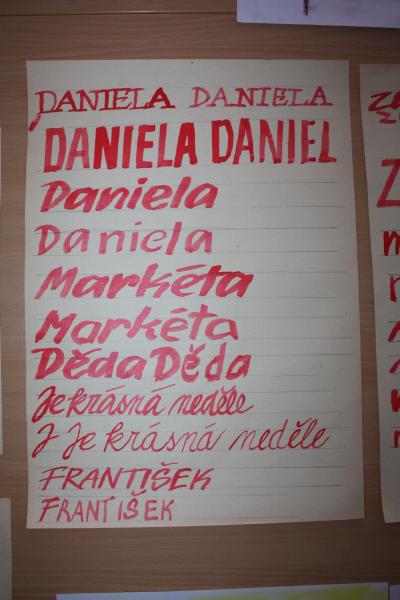 DANIELA DANIELA
DANIELA DANIEL
Daniela
Daniela
Markéta
Markéta
Děda Děda
Je krásná neděle
J Je krásná neděle
FRANTIŠEK
FRANTIŠEK